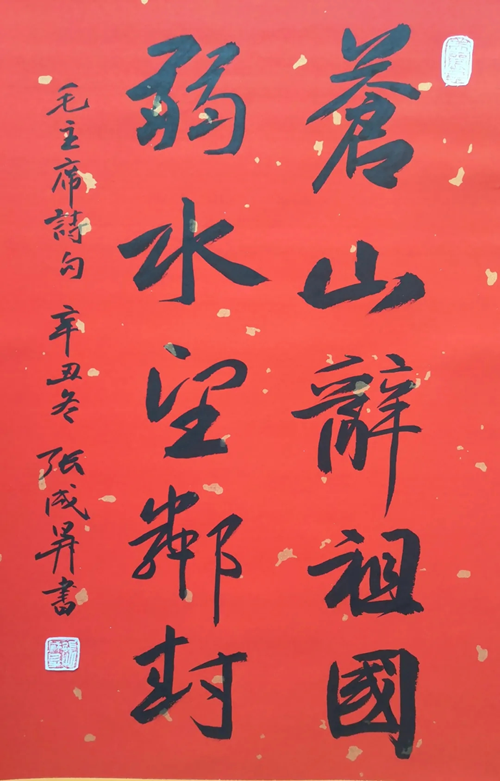 蒼山辭祖國
弱水望鄰封
毛主席詩句 辛丑冬 張成昇書